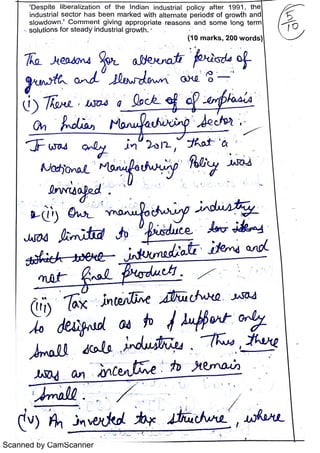 'Despite liberalization of the Indian industrial policy after 1991, the
industrial sector has been marked with alternate periods of growth and
slowdown.' Comment giving appropriate reasons and some long term
solutions for steady industrial growth.
(10 marks, 200 words)
5/10
The reasons for alternate periods of
growth and slowdown are :-
(i) There was a lack of of emphasis
on Indian Manufacturing Sector.
It was only in 2012, that a
National Manufacturing Policy was
envisaged.
(ii) Our manufacturing industry
was limited to produce
which were intermediate items and
not final products.
(iii) Tax incentive structure was
so designed as to support only
small scale industries. Thus, there
was an incentive to remain
small.
(iv) An inverted tax structure, where
Scanned by CamScanner